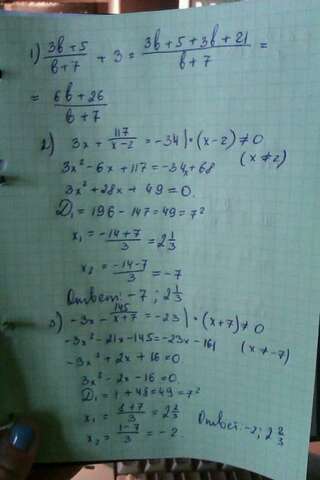 1) (3b+5)/(b+7) + 3 = (3b+5+3b+21)/(b+7) =
= (6b+26)/(b+7)
2) 3x + 117/(x-2) = -34 | · (x-2) ≠ 0
3x² - 6x + 117 = -34x + 68 (x ≠ 2)
3x² + 28x + 49 = 0.
D₁ = 196 - 147 = 49 = 7²
x₁ = (-14+7)/3 = 2 1/3
x₂ = (-14-7)/3 = -7
Ответ: -7 ; 2 1/3
3) -3x - 145/(x+7) = -23 | · (x+7) ≠ 0
-3x² - 21x - 145 = -23x - 161 (x ≠ -7)
-3x² + 2x + 16 = 0
3x² - 2x - 16 = 0.
D₁ = 1 + 48 = 49 = 7²
x₁ = (1+7)/3 = 2 2/3
x₂ = (1-7)/3 = -2. Ответ: -2; 2 2/3